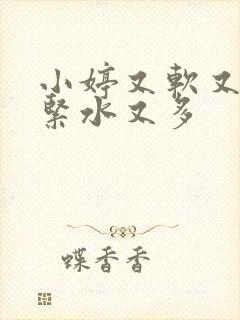 小婷又軟又
緊水又多
蝶香香